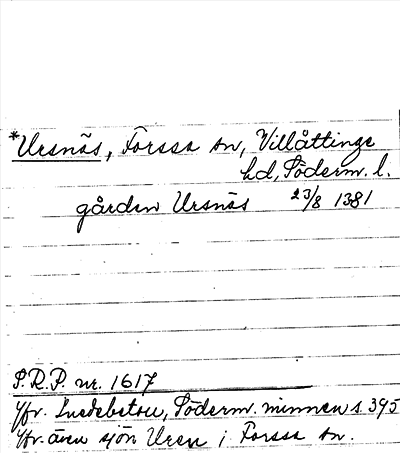 *Ursnäs, Forssa sn, Villåttinge
hd, Söderm. l.
gården Ursnäs 23/8 1381
S.R.P. nr. 1617
Jfr. Luedebetou, Söderm. minnen s. 395
Jfr. även sjön Uren i Forssa sn.